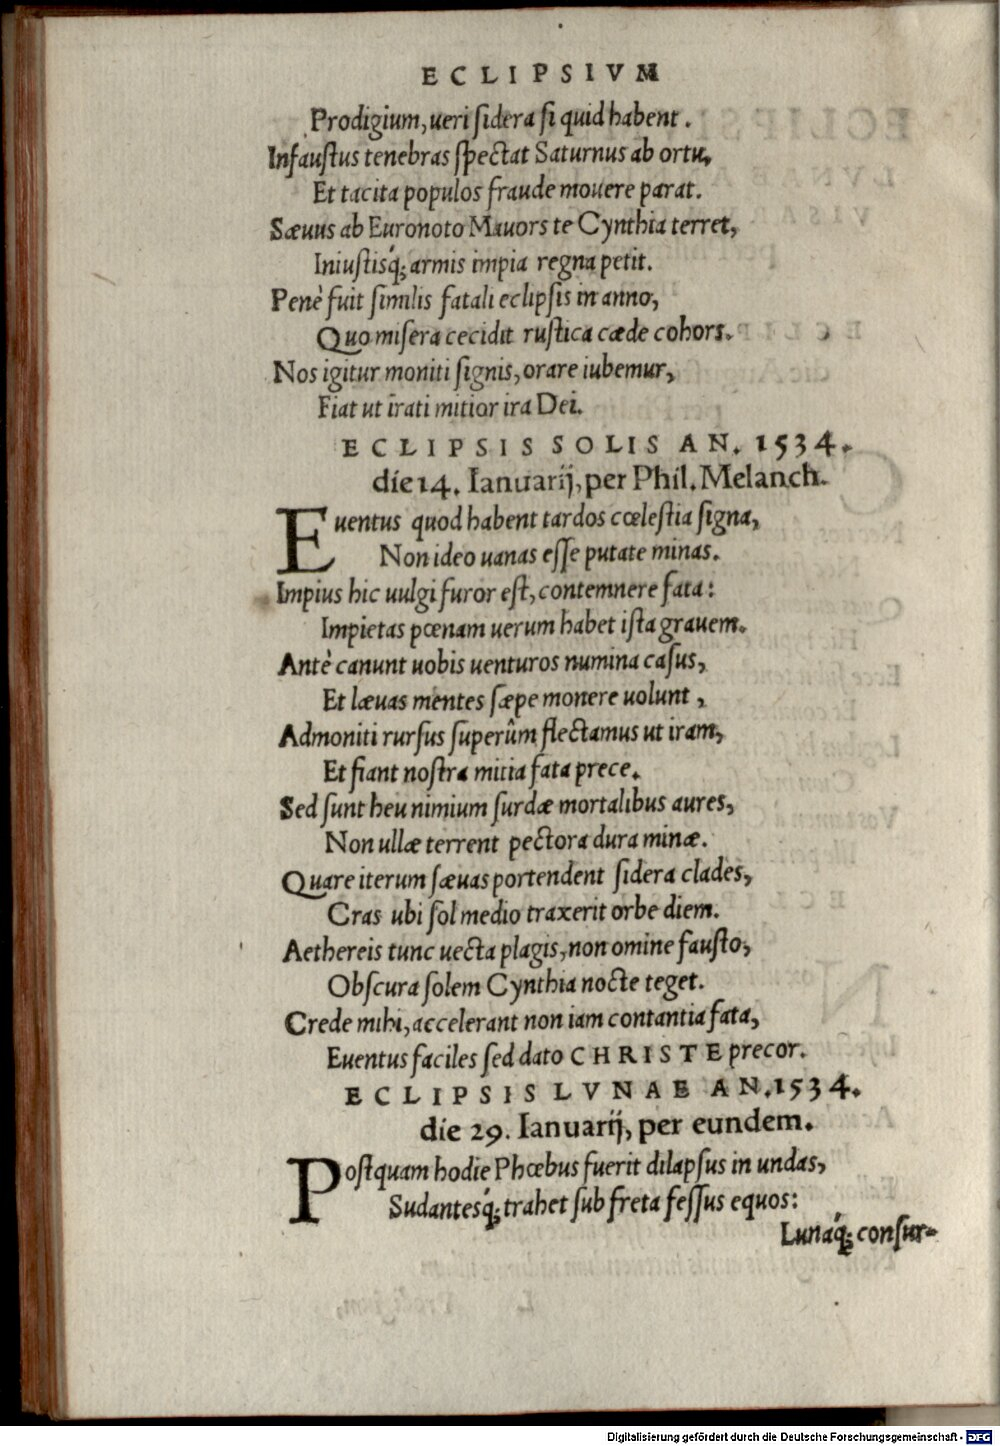 ECLIPSIVM
Prodigium, ueri ſidera ſi quid habent.
Infauſtus tenebras ſpectat Saturnus ab ortu,
Et tacita populos fraude mouere parat.
Sæuus ab Euronoto Mauors te Cynthia terret,
Iniuſtisq́; armis impia regna petit.
Penè fuit ſimilis fatali eclipſis in anno,
Quo miſera cecidit ruſtica cæde cohors.
Nos igitur moniti ſignis, orare iubemur,
Fiat ut irati mitior ira Dei.
ECLIPSIS SOLIS AN. 1534.
die 14. Ianuarij, per Phil. Melanch.
Euentus quod habent tardos cœleſtia ſigna,
Non ideo uanas eſſe putate minas.
Impius hic uulgi furor eſt, contemnere fata:
Impietas pœnam uerum habet iſta grauem.
Antè canunt uobis uenturos numina caſus,
Et læuas mentes ſæpe monere uolunt,
Admoniti rurſus ſuperûm flectamus ut iram,
Et fiant noſtra mitia fata prece.
Sed ſunt heu nimium ſurdæ mortalibus aures,
Non ullæ terrent pectora dura minæ.
Quare iterum ſæuas portendent ſidera clades,
Cras ubi ſol medio traxerit orbe diem.
Aethereis tunc uecta plagis, non omine fauſto,
Obſcura ſolem Cynthia nocte teget.
Crede mihi, accelerant non iam contantia fata,
Euentus faciles ſed dato CHRISTE precor.
ECLIPSIS LVNAE AN. 1534.
die 29. Ianuarij, per eundem.
Poſtquam hodie Phœbus fuerit dilapſus in undas,
Sudantesq́; trahet ſub freta feſſus equos:
Lunaq́; conſur-
Digitalisierung gefördert durch die Deutsche Forschungsgemeinschaft - DFG